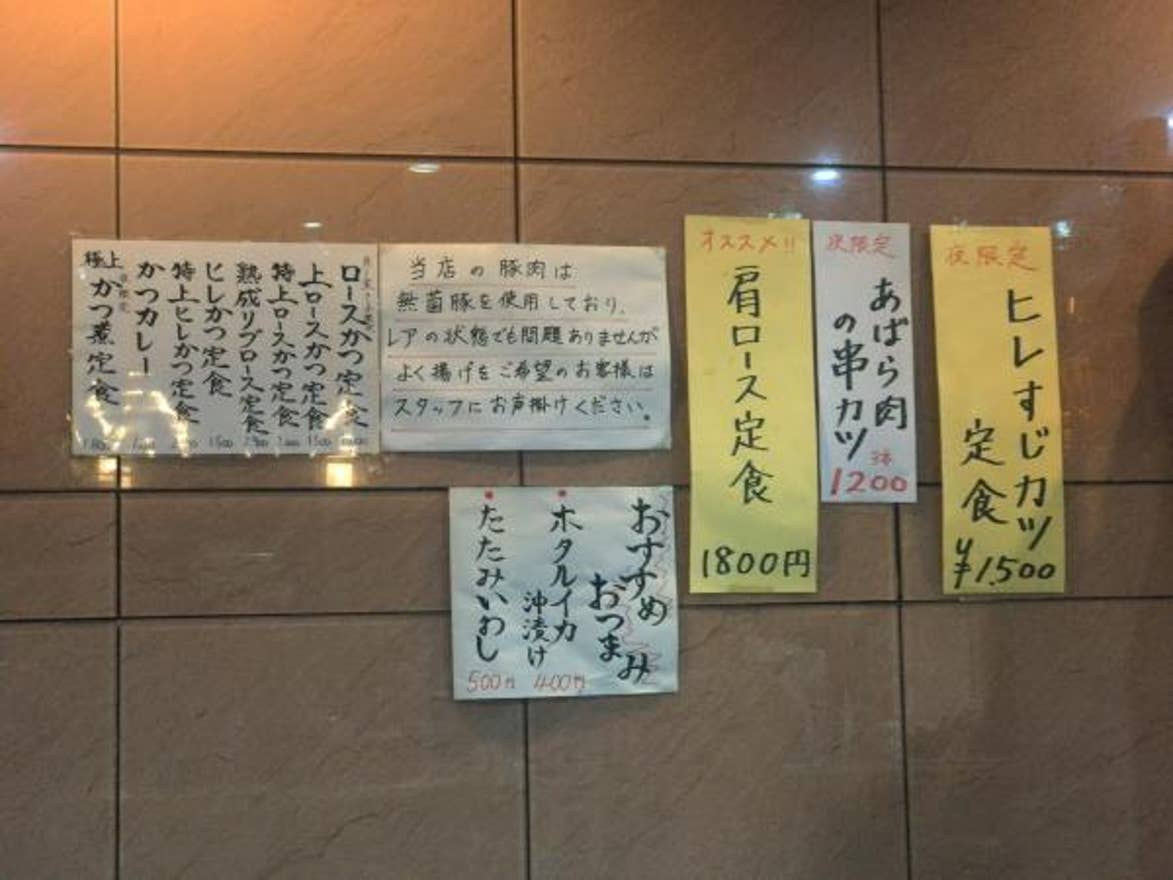 ロースかつ定食
上ロースかつ定食
1,500
特上ロースかつ定食
熟成リブロース定食
ヒレかつ定食
1500
特上ヒレかつ定食
かつカレー
極上かつ煮定食
当店の豚肉は
無菌豚を使用しており、
レアの状態でも問題ありませんが
よく揚げをご希望のお客様は
スタッフにお声掛けください。
オススメ!!
肩ロース定食
1800円
夜限定
あばら肉
の串カツ
3本
1200
夜限定
ヒレすじカツ
定食
¥1,500
おすすめ
おつまみ
ホタルイカ
沖漬け
400円
たたみいわし
500円